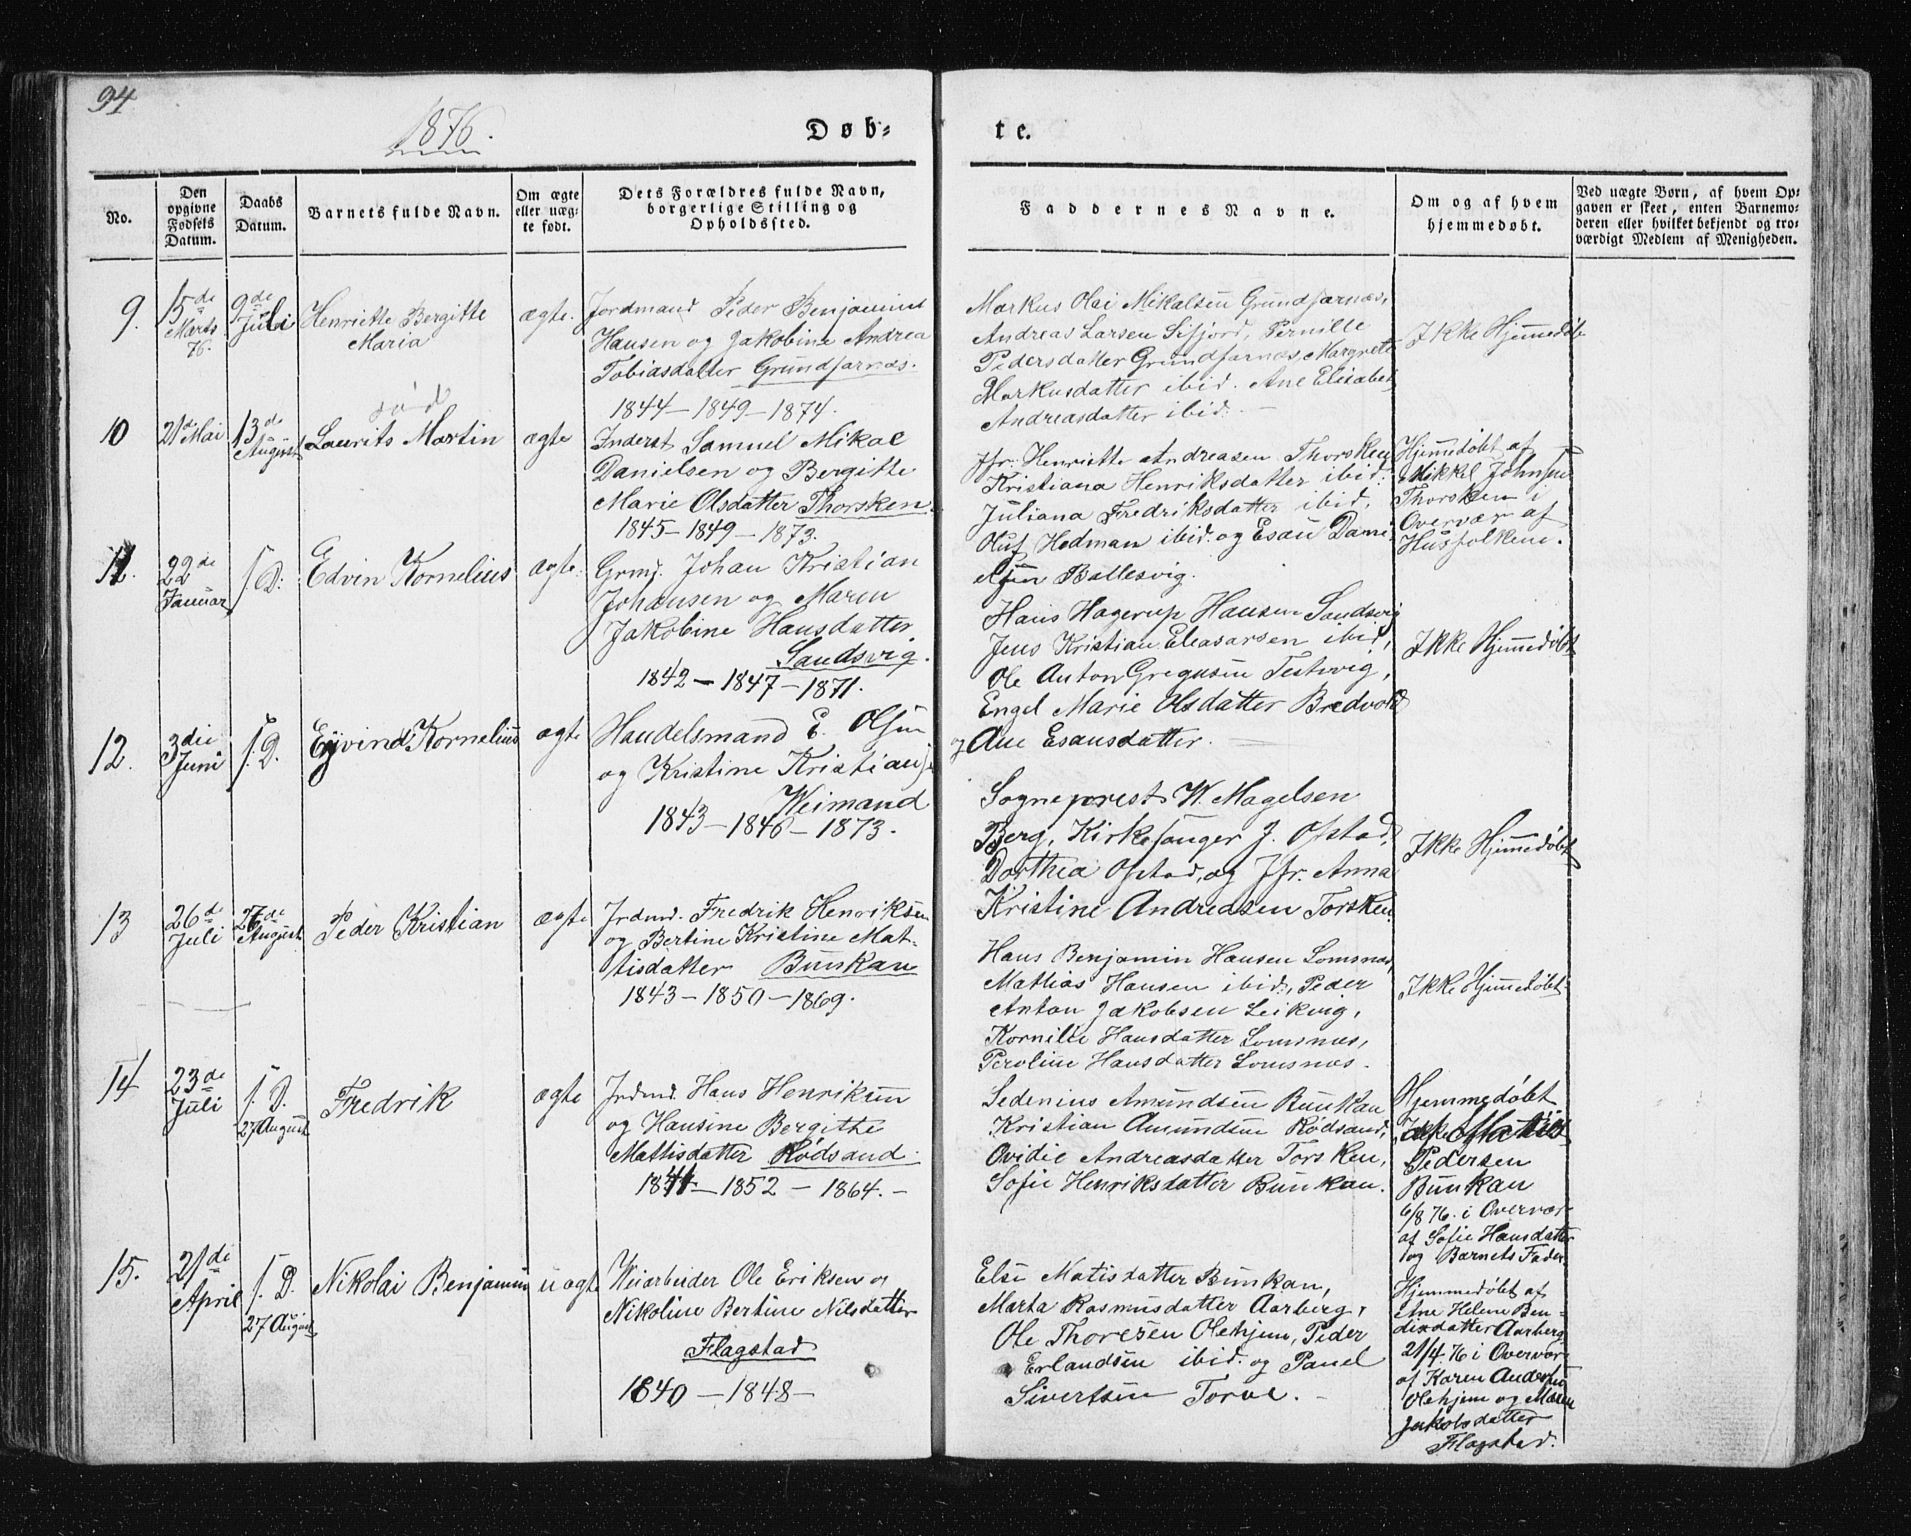 94
1876.
Døb-
te.
No.
Den opgivne Fødsels Datum.
Daabs Datum.
Barnets fulde Navn.
Om ægte eller uæg- te født.
Dets Forældres fulde Navn, borgerlige Stilling og Opholdssted.
Faddernes Navne.
Om og af hvem hjemmedøbt.
Ved uægte Børn, af hvem Op- gaven er skeet, enten Barnemo- deren eller hvilket bekjendt og tro- værdigt Medlem af Menigheden.
9.
15de
Marts
76.
9de
Juli
Henriette Bergitte
Maria
ægte.
Jordmand Peder Benjamins
Hansen og Jakobine Andrea
Tobiasdatter Grundfarnæs.
1844 – 1849 – 1874.
Markus Olai Mikalsen Grundfarnæs,
Andreas Larsen Sifjord, Pernille
Pedersdatter Grundfarnæs, Margrete
Markusdatter ibid. Ane Elisabet
Andreasdatter ibid. –
Ikke Hjemmedøbt
10
21de Mai
13de
August
død
Laurits Martin
ægte
Inderst Samuel Mikal
Danielsen og Bergitte
Marie Olsdatter Thorsken.
1845 – 1849 – 1873.
Jfr. Henriette Andreasen Thorsken
Kristiana Henriksdatter ibid.
Juliana Fredriksdatter ibid.
Oluf Hedman ibid. og Esau Dani-
elsen Ballesvig.
Hjemmedøbt af
Mikkel Johnsen
Thorsken i
Overvær af
Husfolkene.
11.
22de
Januar
s. D.
Edvin Kornelius
ægte.
Grmd. Johan Kristian
Johansen og Maren
Jakobine Hansdatter
Sandsvig.
1842 – 1847 – 1871.
Hans Hagerup Hansen Sandsvig
Jens Kristian Eleasarsen ibid,
Ole Anton Gregusen Testvig,
Engel Marie Olsdatter Bredvold
og Ane Esausdatter.
Ikke Hjemmedøbt
12.
3die
Juni
s. D.
Eyvind Kornelius
ægte
Handelsmand E. Olsen
og Kristine Kristians
Weimand
1843 – 1846 – 1873.
Sogneprest W. Magelsen
Berg, Kirkesanger J. Ofstad,
Dorthea Ofstad, og Jfr. Anna
Kristine Andreasen Torsken.
Ikke Hjemmedøbt
13
26de
Juli
27de
August
Peder Kristian
ægte
Jrdmd. Fredrik Henriksen
og Bertine Kristine Mat-
tisdatter Bunkan
1843 – 1850 – 1869.
Hans Benjamin Hansen Lomsnæs,
Mathias Hansen ibid, Peder
Anton Jakobsen Leikvig,
Kornilie Hansdatter Lomsnæs,
Peroline Hansdatter Lomsnæs.
Ikke Hjemmedøbt.
14
23de
Juli
s. D.
27 August
Fredrik
ægte
Jrdmd. Hans Henriksen
og Hansine Bergitte
Mattisdatter Rødsand.
1841 – 1852 – 1864. –
Sedenius Amundsen Bunkan
Kristian Amundsen Rødsand,
Ovidie Andreasdatter Torsken,
Sofie Henriksdatter Bunkan.
Hjemmedøbt
af Matis
Pedersen
Bunkan
6/8 76. i Overvær
af Sofie Hansdatter
og Barnets Fader
15.
21de
April
s. D.
27 August
Nikolai Benjamin
uægte
Veiarbeider Ole Eriksen og
Nikoline Bertine Nilsdatter
Flagstad
1840 – 1848 –
Else Matisdatter Bunkan,
Marta Rasmusdatter Aarberg,
Ole Thoresen Olehjem, Peder
Erlandsen ibid. og Paul
Sivertsen Torve. –
Hjemmedøbt af
Ane Helene Ben-
dixdatter Aarberg
21/4. 76 i Overvær
af Karen Anders
Olehjem og Maren
Jakobsdatter
Flagstad.